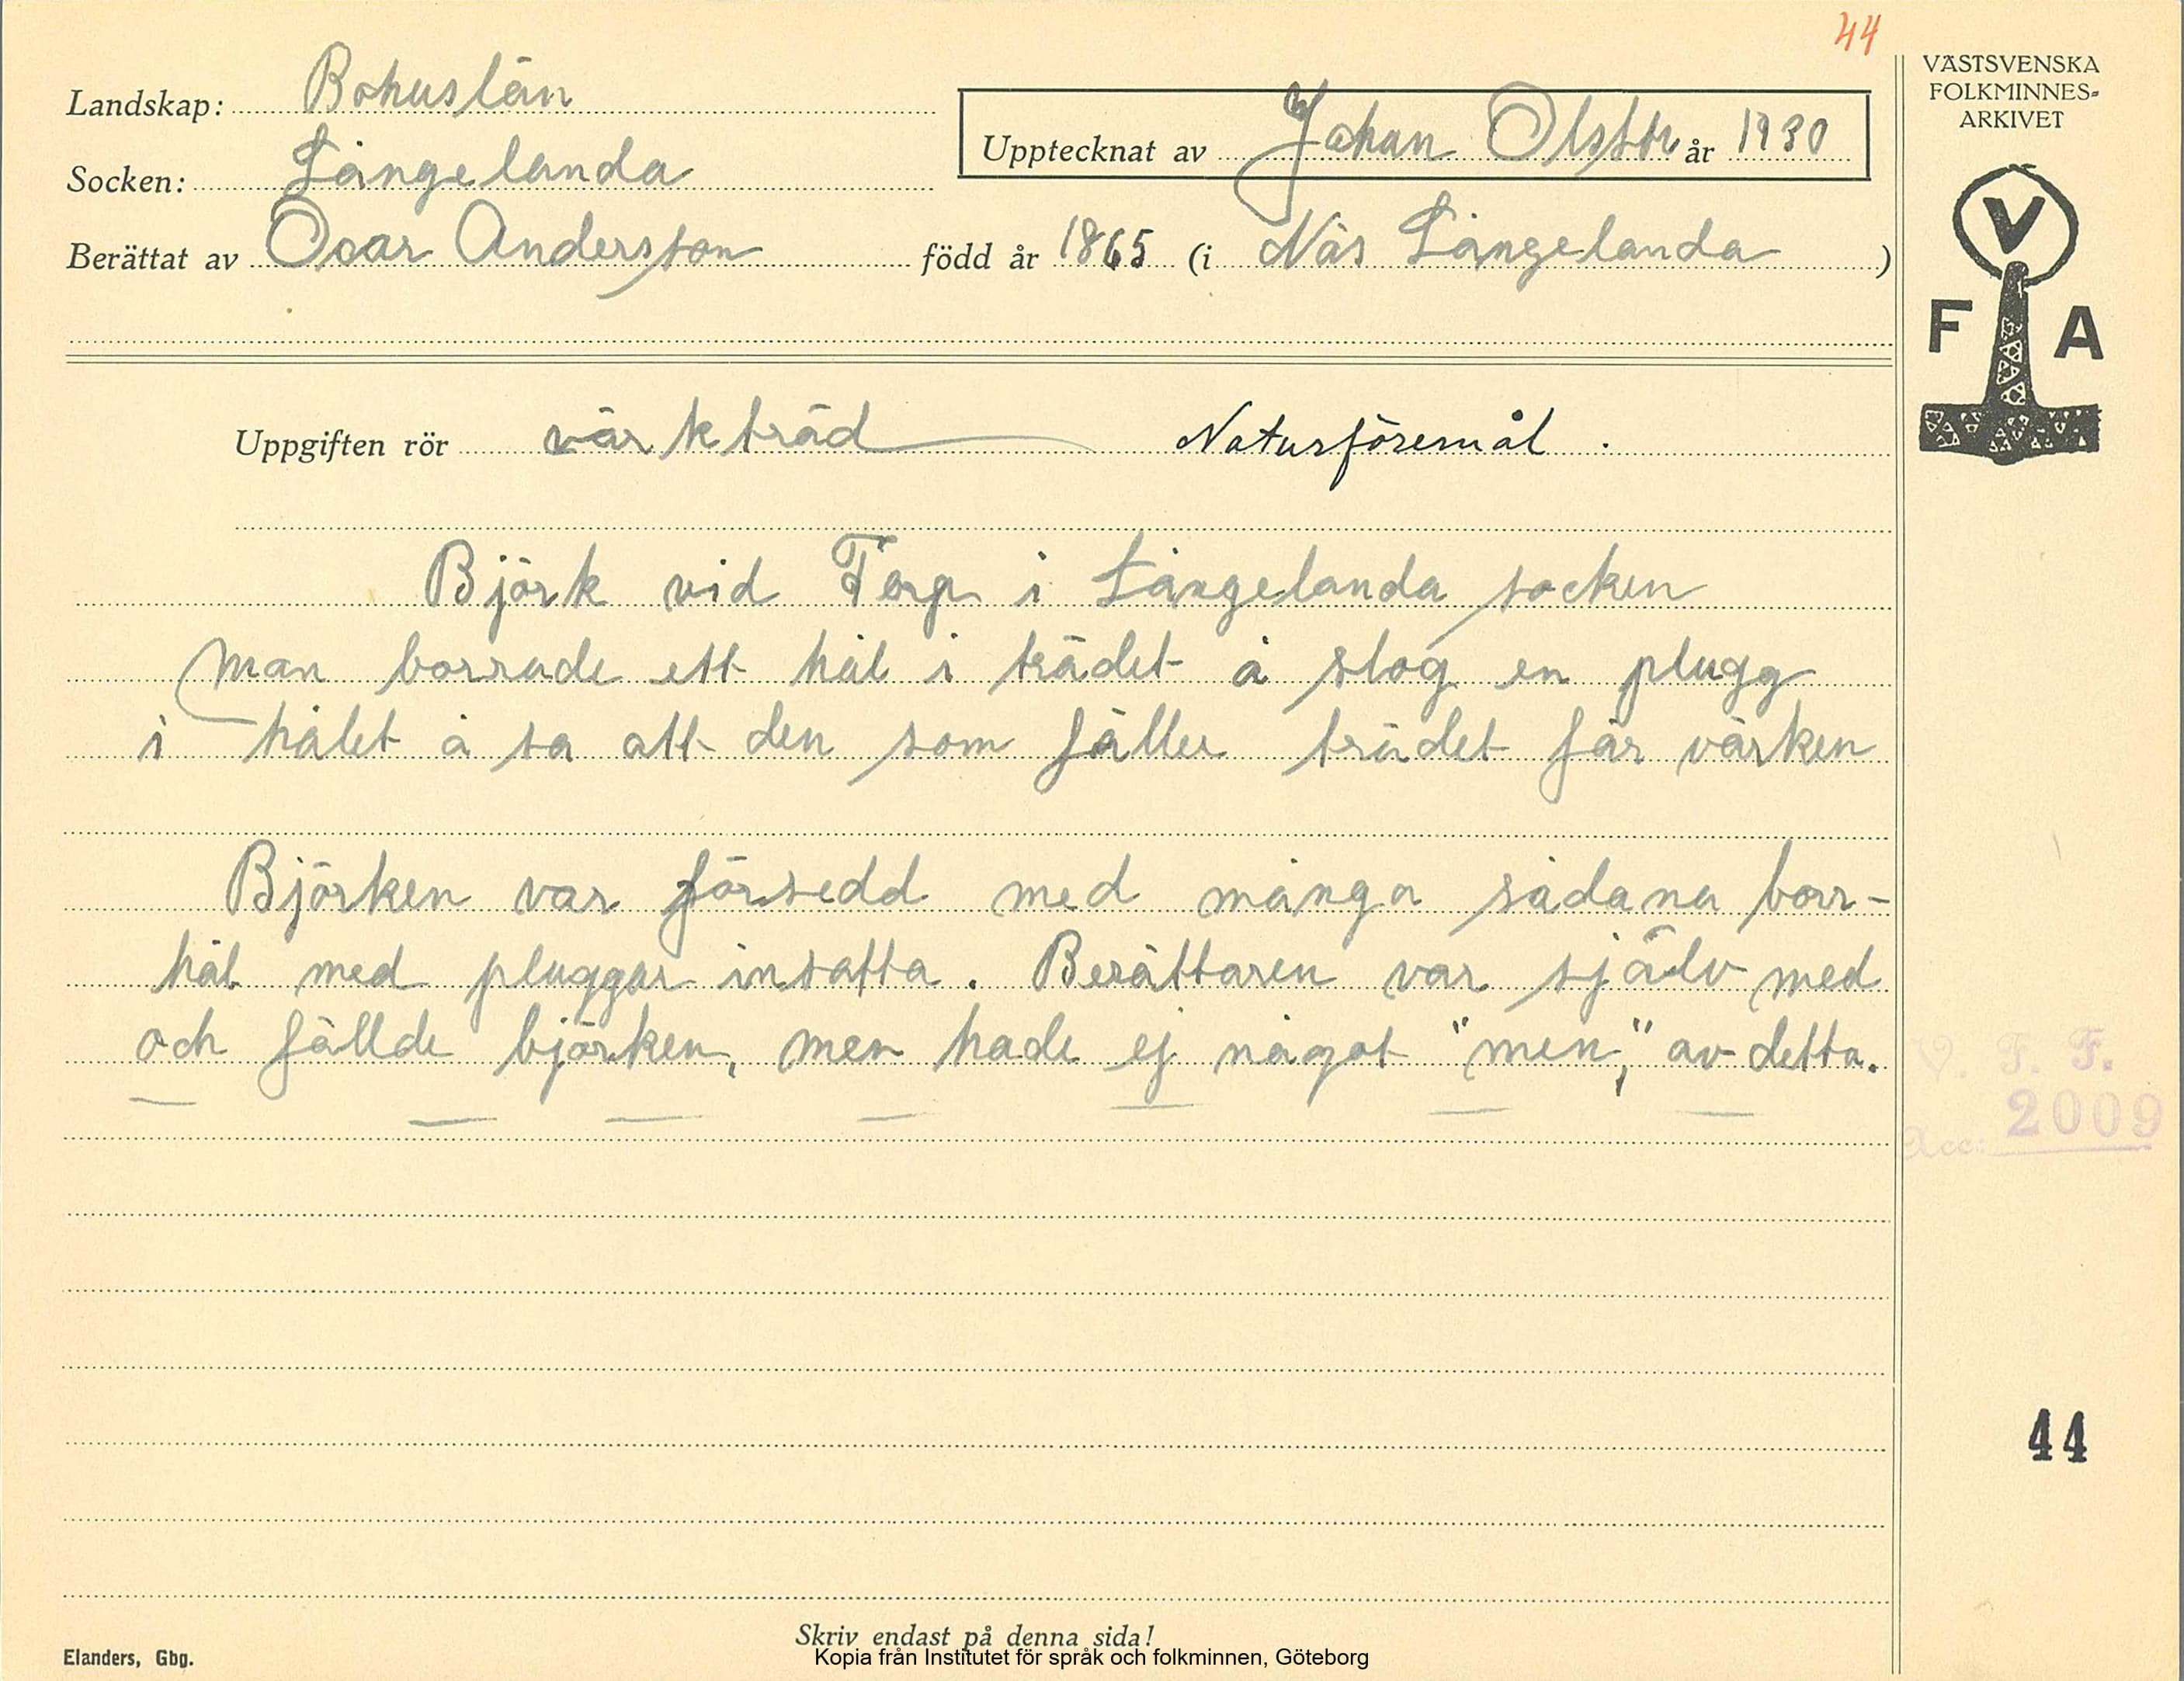 44
VÄSTSVENSKA
FOLKMINNES-
ARKIVET
Landskap: Bohuslän
Upptecknat av Johan Olsson år 1930
Socken: Långelanda
Berättat av Oscar Andersson född år 1865 (i Näs Långelanda)
V
F A
Uppgiften rör värkträd Naturföremål.
Björk vid Torp i Långelanda socken
Man borrade ett hål i trädet å slog en plugg
i hålet å sa att den som fäller trädet får värken
Björken var försedd med många sådana borr-
hål med pluggar insatta. Berättaren var själv med
och fällde björken, men hade ej något "men", av detta.
V. F. F.
Acc: 2009
44
Skriv endast på denna sida!
Elanders, Gbg.
Kopia från Institutet för språk och folkminnen, Göteborg